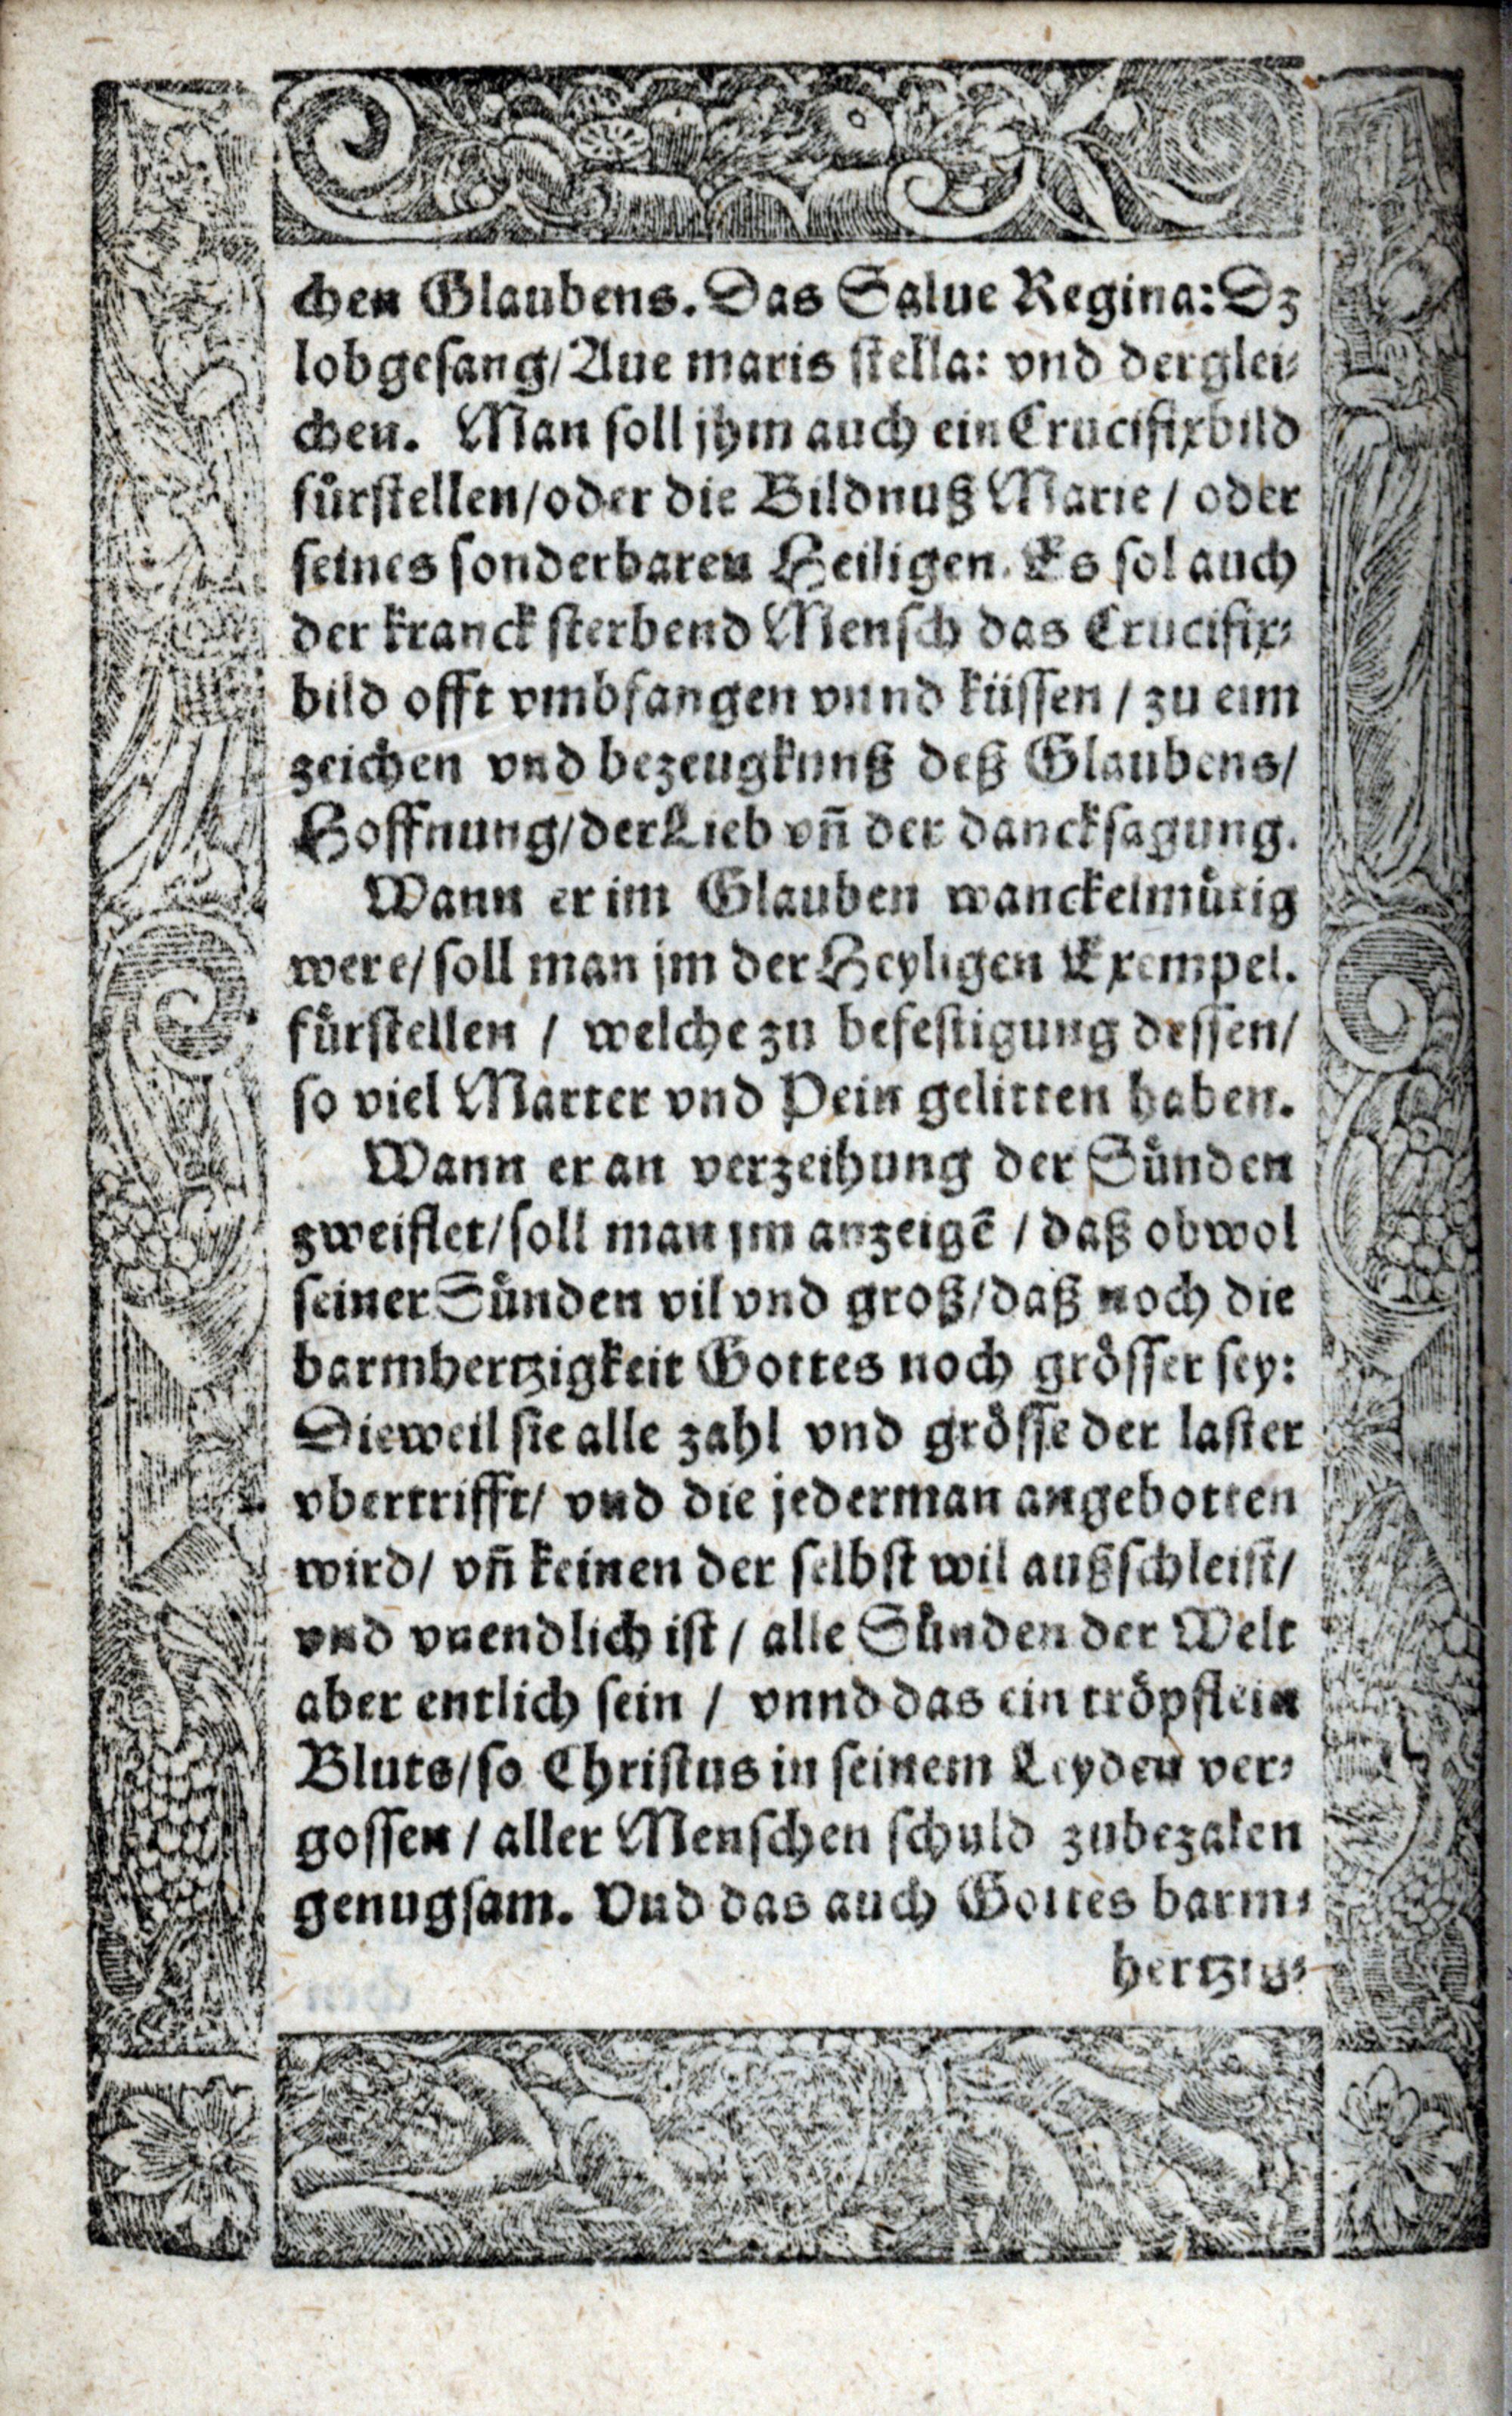 chen Glaubens. Das Salue Regina: Dz
lobgesang/ Aue maris stella: vnd derglei⸗
chen. Man soll jhm auch ein Crucifixbild
fuͤrstellen/ oder die Bildnuß Marie / oder
seines sonderbaren Heiligen. Es sol auch
der kranck sterbend Mensch das Crucifix⸗
bild offt vmbfangen vnnd küssen / zu eim
zeichen vnd bezeugknuß deß Glaubens/
Hoffnung/ der Lieb vn̄ der dancksagung.
Wann er im Glauben wanckelmuͤtig
were/ soll man jm der Heyligen Exempel.
fuͤrstellen / welche zu befestigung dessen/
so viel Marter vnd Pein gelitten haben.
Wann er an verzeihung der Suͤnden
zweiflet/ soll man jm anzeigē / daß obwol
seiner Suͤnden vil vnd groß/ daß noch die
barmhertzigkeit Gottes noch groͤsser sey:
Dieweil sie alle zahl vnd groͤsse der laster
vbertrifft/ vnd die jederman angebotten
wird/ vn̄ keinen der selbst wil außschleist/
vnd vnendlich ist / alle Sünden der Welt
aber entlich sein / vnnd das ein troͤpflein
Bluts/ so Christus in seinem Leyden ver⸗
gossen / aller Menschen schuld zubezalen
genugsam. Vnd das auch Gottes barm⸗
hertzig⸗